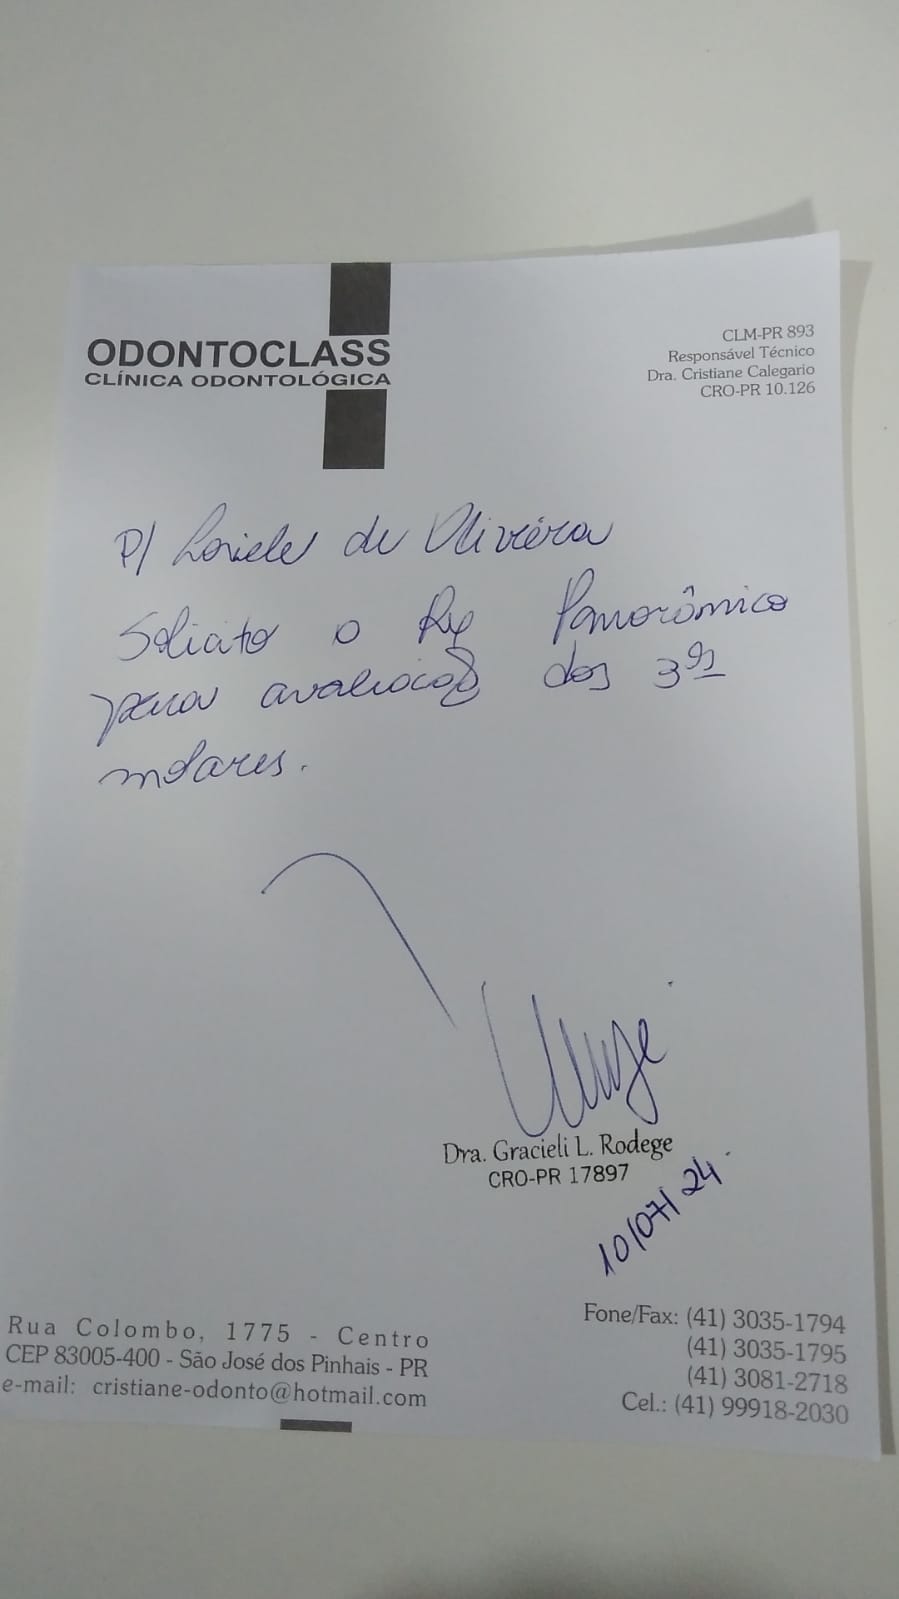 ODONTOCLASS
CLÍNICA ODONTOLÓGICA
CLM-PR 893
Responsável Técnico
Dra. Cristiane Calegario
CRO-PR 10.126
P/ Loriele de Oliveira
Solicito o Rx Panorâmico
para avaliação dos 3ºs
molares.
Dra. Gracieli L. Rodege
CRO-PR 17897
10/07/24
Rua Colombo, 1775 - Centro
CEP 83005-400 - São José dos Pinhais - PR
e-mail: cristiane-odonto@hotmail.com
Fone/Fax: (41) 3035-1794
(41) 3035-1795
(41) 3081-2718
Cel.: (41) 99918-2030